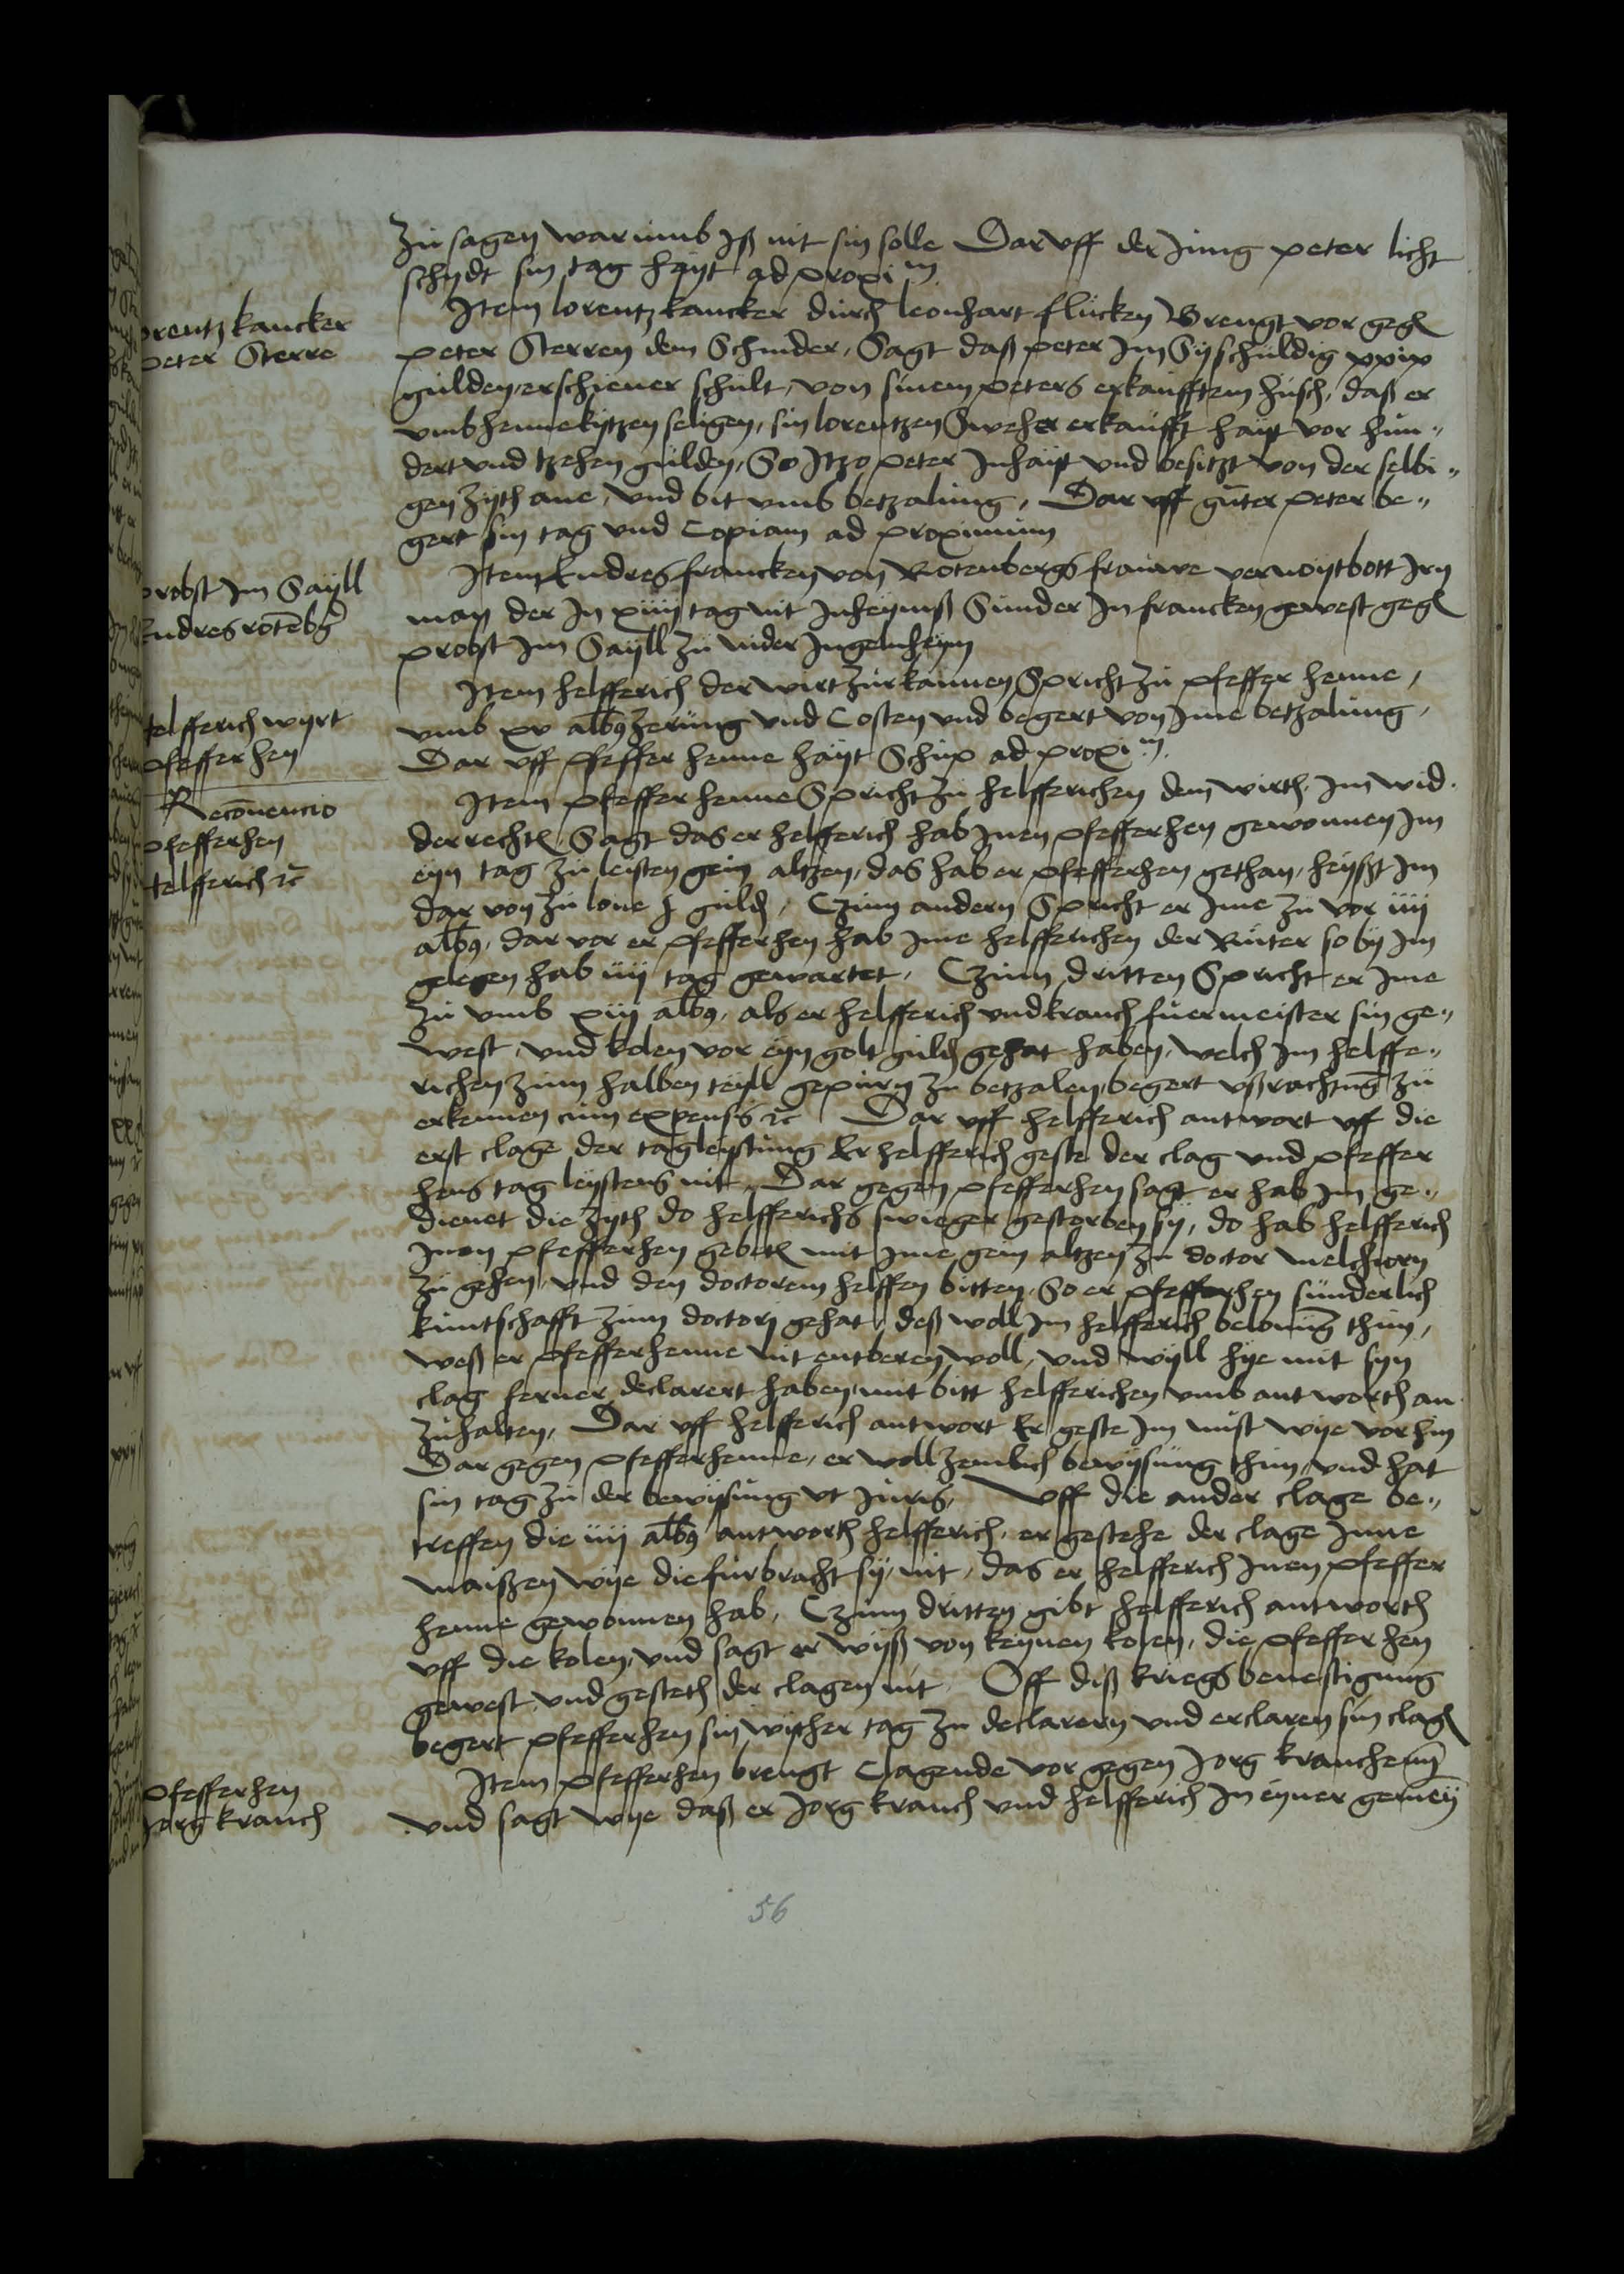 zu sagen warumb Iß nit sin solle Dar uff der Jung peter licht
schydt sin tag hayt ad proxim
Lorentz kancker
peter Sterre
Item lorentz kancker durch leonhart flucken Brengt vor gegen
peter Sterren dem Schmider, Sagt daß peter Im Sy schuldig xxix
gulden, erschiener schult, von sinem peters erkaufftem husch, daß er
umb henne kytzen seligen, sin lorentzen Sweher erkaufft hayt vor hun„
dert und tzehen gulden, So Itzo peter Inhayt und besitzt von der selbi„
gen Zyth ane, und bit umb betzalung, Dar uff guter peter be„
gert sin tag und Copiam ad proximum
probst Im Sayll
Endres rotenberg
Item Endres francken von Rotenbergs frauwe vernoytbott Irn
man der In xiiij tag nit Inheymß Sunder In francken gewest gegen
probst Im Sayll zu nider Ingelnheym
helfferich wyrt
pfefferhen
Item helfferich der wirt zur kannen Spricht zu pfeffer henne,
umb xv albus zerung und Costen und begert von Ime betzalung,
Dar uff pfeffer henne hayt Schup ad proxim
Reconvencio
pfefferhen
helfferich etc
Item pfeffer henne Spricht zu helfferichen dem wirth Im wid
derrechten, Sagt das er helfferich hab Inen pfefferhen gewonnen Im
eyn tag zu leisten gein altzen, das hab er pfefferhen gethan, heyscht Im
dar von zu lone j gulden, Czum andern Spricht er Ime zu vor iiij
albus, dar vor er pfefferhen hab Ime helfferichen der Ruter so by Im
gelegen hab iiij tag gewartet, Czum dritten Spricht er Ime
zu umb xiij albus, als er helfferich und kranch furmeister sin ge„
west, und kolen vor eyn golt gulden gehat haben, welch Im helffe„
richen zum halben teyll gepurn zu betzalen, begert ußrachtung zu
erkennen cum expensis etc Dar uff helfferich antwort uff die
erst clage der tagleystung Er helfferich geste der clag und pfeffer
hens tag leystens nit, Dar gegen pfefferhen sagt er hab Im ge„
dienet die Zyth do helfferichs swieger gestorben sy, do hab helfferich
Inen pfefferhen gebeten mit Ime gein altzen zu doctor melchiorn
zu gehen, und den doctorem helffen bitten, So er pfefferhen sunderlich
kuntschafft zum doctori gehat, deß woll Im helfferich belonung thun,
weß er pfefferhenne nit entberen woll, und wyll hye mit syn
clag ferner declarert haben, mit bitt helfferichen umb antworth an
zuhalten, Dar uff helfferich antwort Er geste Im nust wye vorhin
Dar gegen pfefferhenne, er woll zemlich bewysung thun, und hat
sin tag zu der bewysung ut Juris, Uff die ander clage be„
treffen die iiij albus antworth helfferich, er gestehe der clage Inne
maißen wye die furbracht sy, nit, das er helfferich Inen pfeffer
henne gewonnen hab, Czum dritten gibt helfferich antworth
uff die kolen, und sagt er wyß von keynen kolen, die pfefferhen
gewest und gesteth der clagen nit, Off diß kriegs bevestigung
begert pfefferhen sin wyther tag zu declarern und erclaren sin clagen
pfefferhen
Jorg kranch
Item pfefferhen brengt Clagende vor gegen Jorg kranchenn
und sagt wye daß er Jorg kranch und helfferich In eyner gemey
56